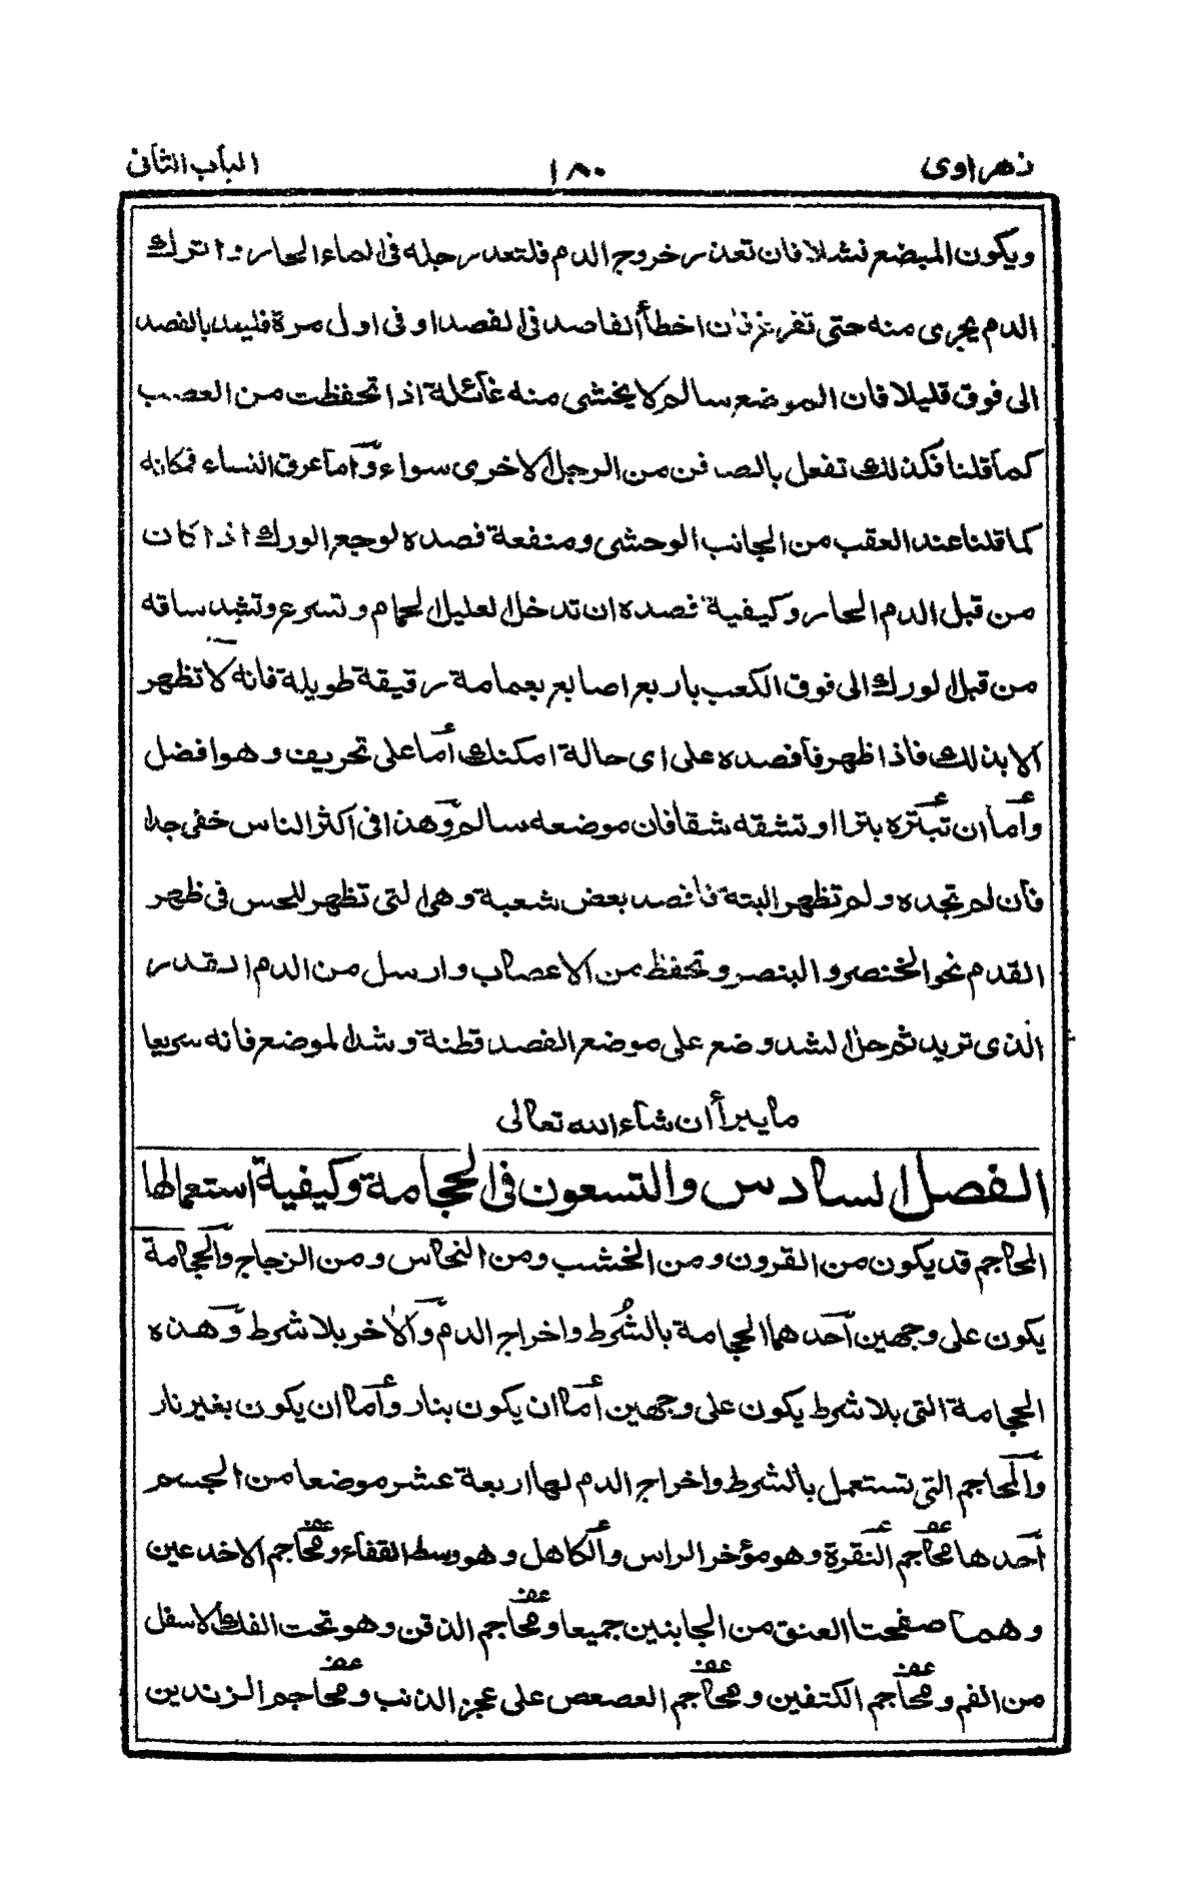 زهراوى ١٨٠ الباب الثانى
ويكون المبضع نشلا فان تعذر خروج الدم فلتعد رجله فى الماء الحار واترك
الدم يجرى منه حتى تفرغ فان اخطأ الفاصد فى الفصد او فى اول مرة فليعد بالفصد
الى فوق قليلا فان الموضع سالم لا يخشى منه غائلة اذا تحفظت من العصب
كما قلنا فكذلك تفعل بالصافن من الرجل الاخرى سواء واما عرق النساء فمكانه
كما قلنا عند العقب من الجانب الوحشى ومنفعة فصده لوجع الورك اذا كان
من قبل الدم الحار وكيفية فصده ان تدخل العليل الحمام وتسرع وتشد ساقه
من قبل الورك الى فوق الكعب باربع اصابع بعمامة رقيقة طويلة فانه لا تظهر
الا بذلك فاذا ظهر فافصده على اى حالة امكنك أما على تحريف وهو افضل
وأما ان تبتره بترا او تشقه شقا فان موضعه سالم وهذا فى اكثر الناس خفى جدا
فان لم تجده ولم تظهر البتة فافصد بعض شعبة وهى التى تظهر للحس فى ظهر
القدم نحو الخنصر والبنصر وتحفظ من الاعصاب وارسل من الدم القدر
الذى تريد ثم حل الشد وضع على موضع الفصد قطنة وشد الموضع فانه سريعا
ما يبرأ ان شاء الله تعالى
الفصل السادس والتسعون فى الحجامة وكيفية استعمالها
المحاجم قد يكون من القرون ومن الخشب ومن النحاس ومن الزجاج والحجامة
يكون على وجهين آحدهما الحجامة بالشرط واخراج الدم والآخر بلا شرط وهذه
الحجامة التى بلا شرط يكون على وجهين أما ان يكون بنار وأما ان يكون بغير نار
والمحاجم التى تستعمل بالشرط واخراج الدم لها اربعة عشر موضعا من الجسم
آحدها محاجم النقرة وهو مؤخر الراس والكاهل وهو وسط القفاء ومحاجم الاخدعين
وهما صفحتا العنق من الجابنين جميعا ومحاجم الذقن وهو تحت الفك الاسفل
من الفم ومحاجم الكتفين ومحاجم العصعص على عجز الذنب ومحاجم الزندين